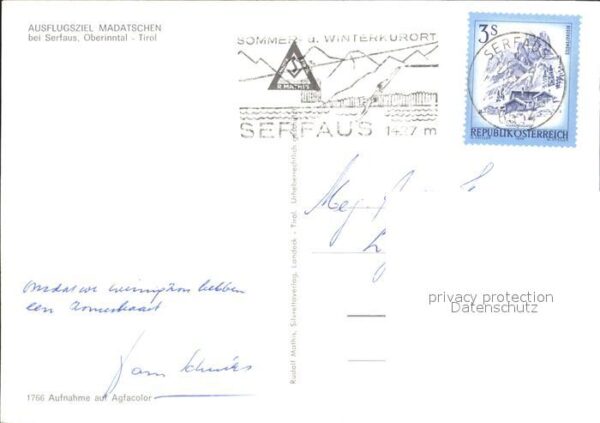 AUSFLUGSZIEL MADATSCHEN
bei Serfaus, Oberinntal - Tirol
SOMMER- u. WINTERKURORT
R. MATHIS
SERFAUS 1427 m
3S
SERFAUS
REPUBLIK ÖSTERREICH
Rudolf Mathis, Silvrettaverlag, Landeck - Tirol. Urheberrechtlich
omdat we weinig zon hebben
een zomerkaart
privacy protection
Datenschutz
1766 Aufnahme auf Agfacolor